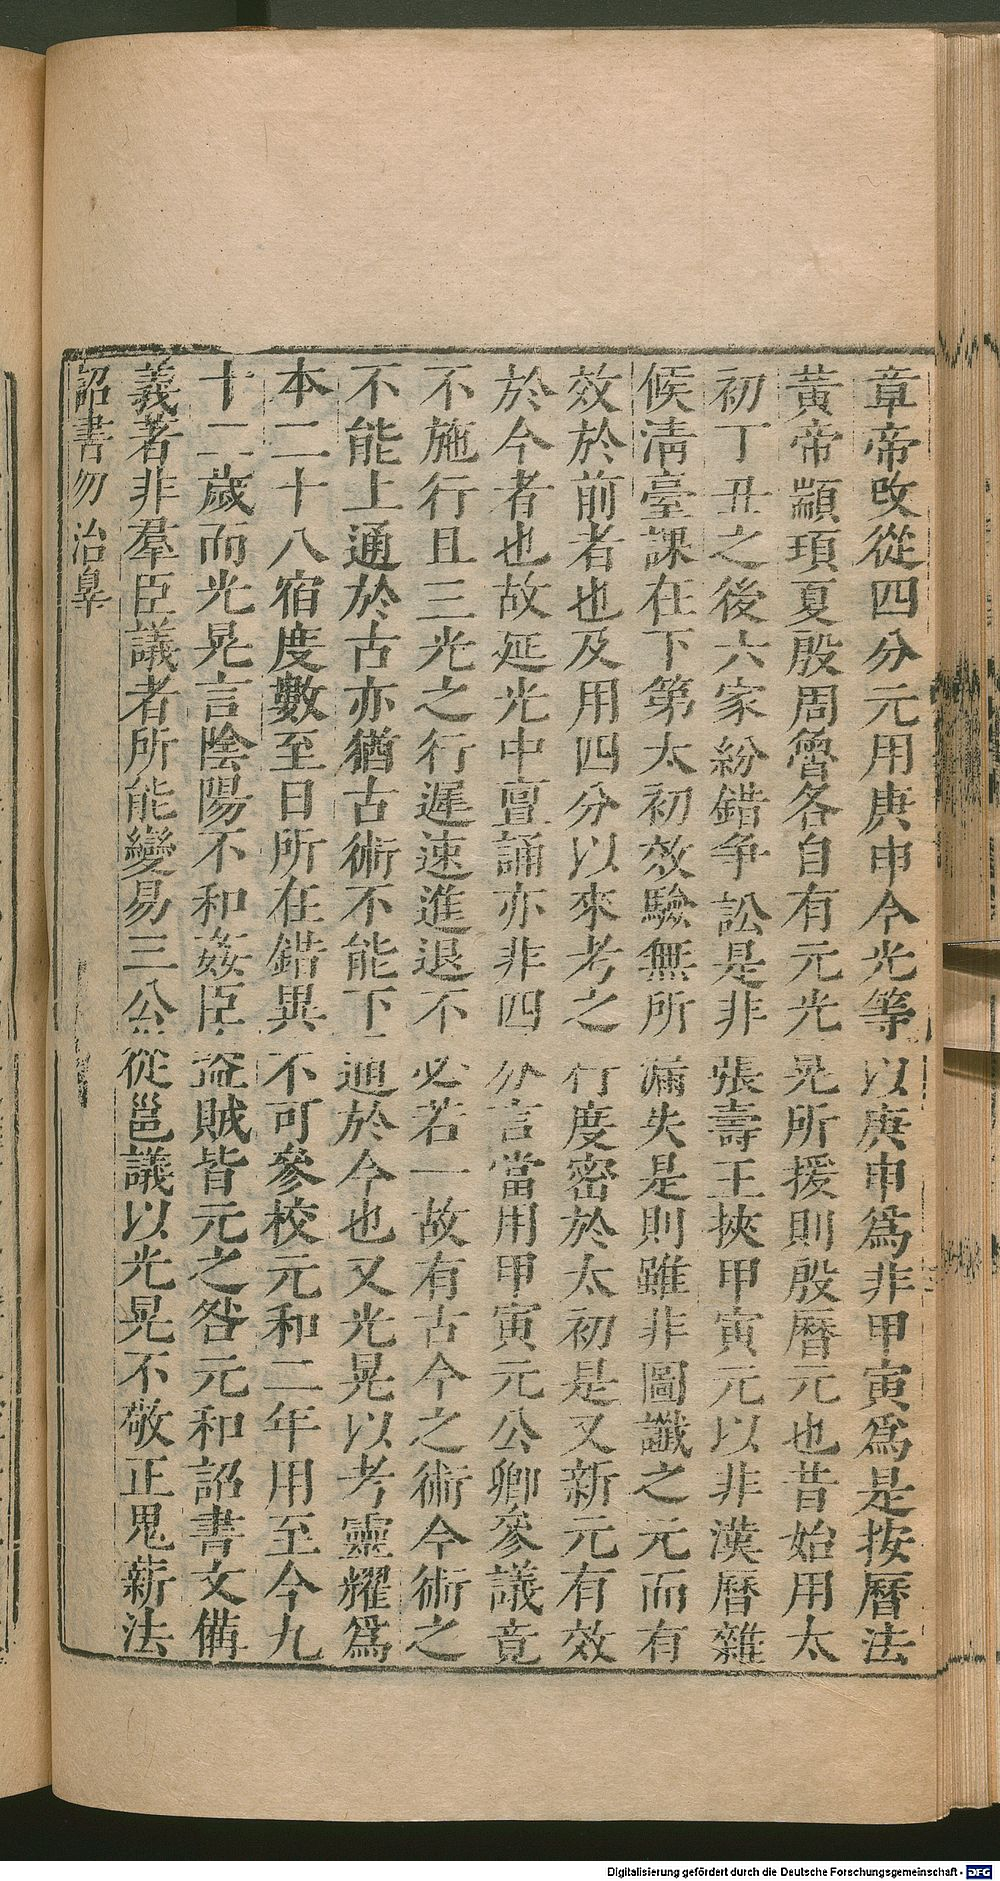 章帝改從四分元用庚申今光等以庚申爲非甲寅爲是按曆法
黃帝顓頊夏殷周魯各自有元光晃所援則殷曆元也昔始用太
初丁丑之後六家紛錯争訟是非張壽王挾甲寅元以非漢曆雜
候清臺課在下第太初效驗無所漏失是則雖非圖讖之元而有
效於前者也及用四分以來考之行度密於太初是又新元有效
於今者也故延光中亶誦亦非四分言當用甲寅元公卿參議竟
不施行且三光之行遲速進退不必若一故有古今之術今術之
不能上通於古亦猶古術不能下通於今也又光晃以考靈耀爲
本二十八宿度數至日所在錯異不可參校元和二年用至今九
十二歲而光晃言陰陽不和姦臣盜賊皆元之咎元和詔書文備
義著非羣臣議者所能變易三公從邕議以光晃不敬正鬼薪法
詔書勿治辠
Digitalisierung gefördert durch die Deutsche Forschungsgemeinschaft - DFG